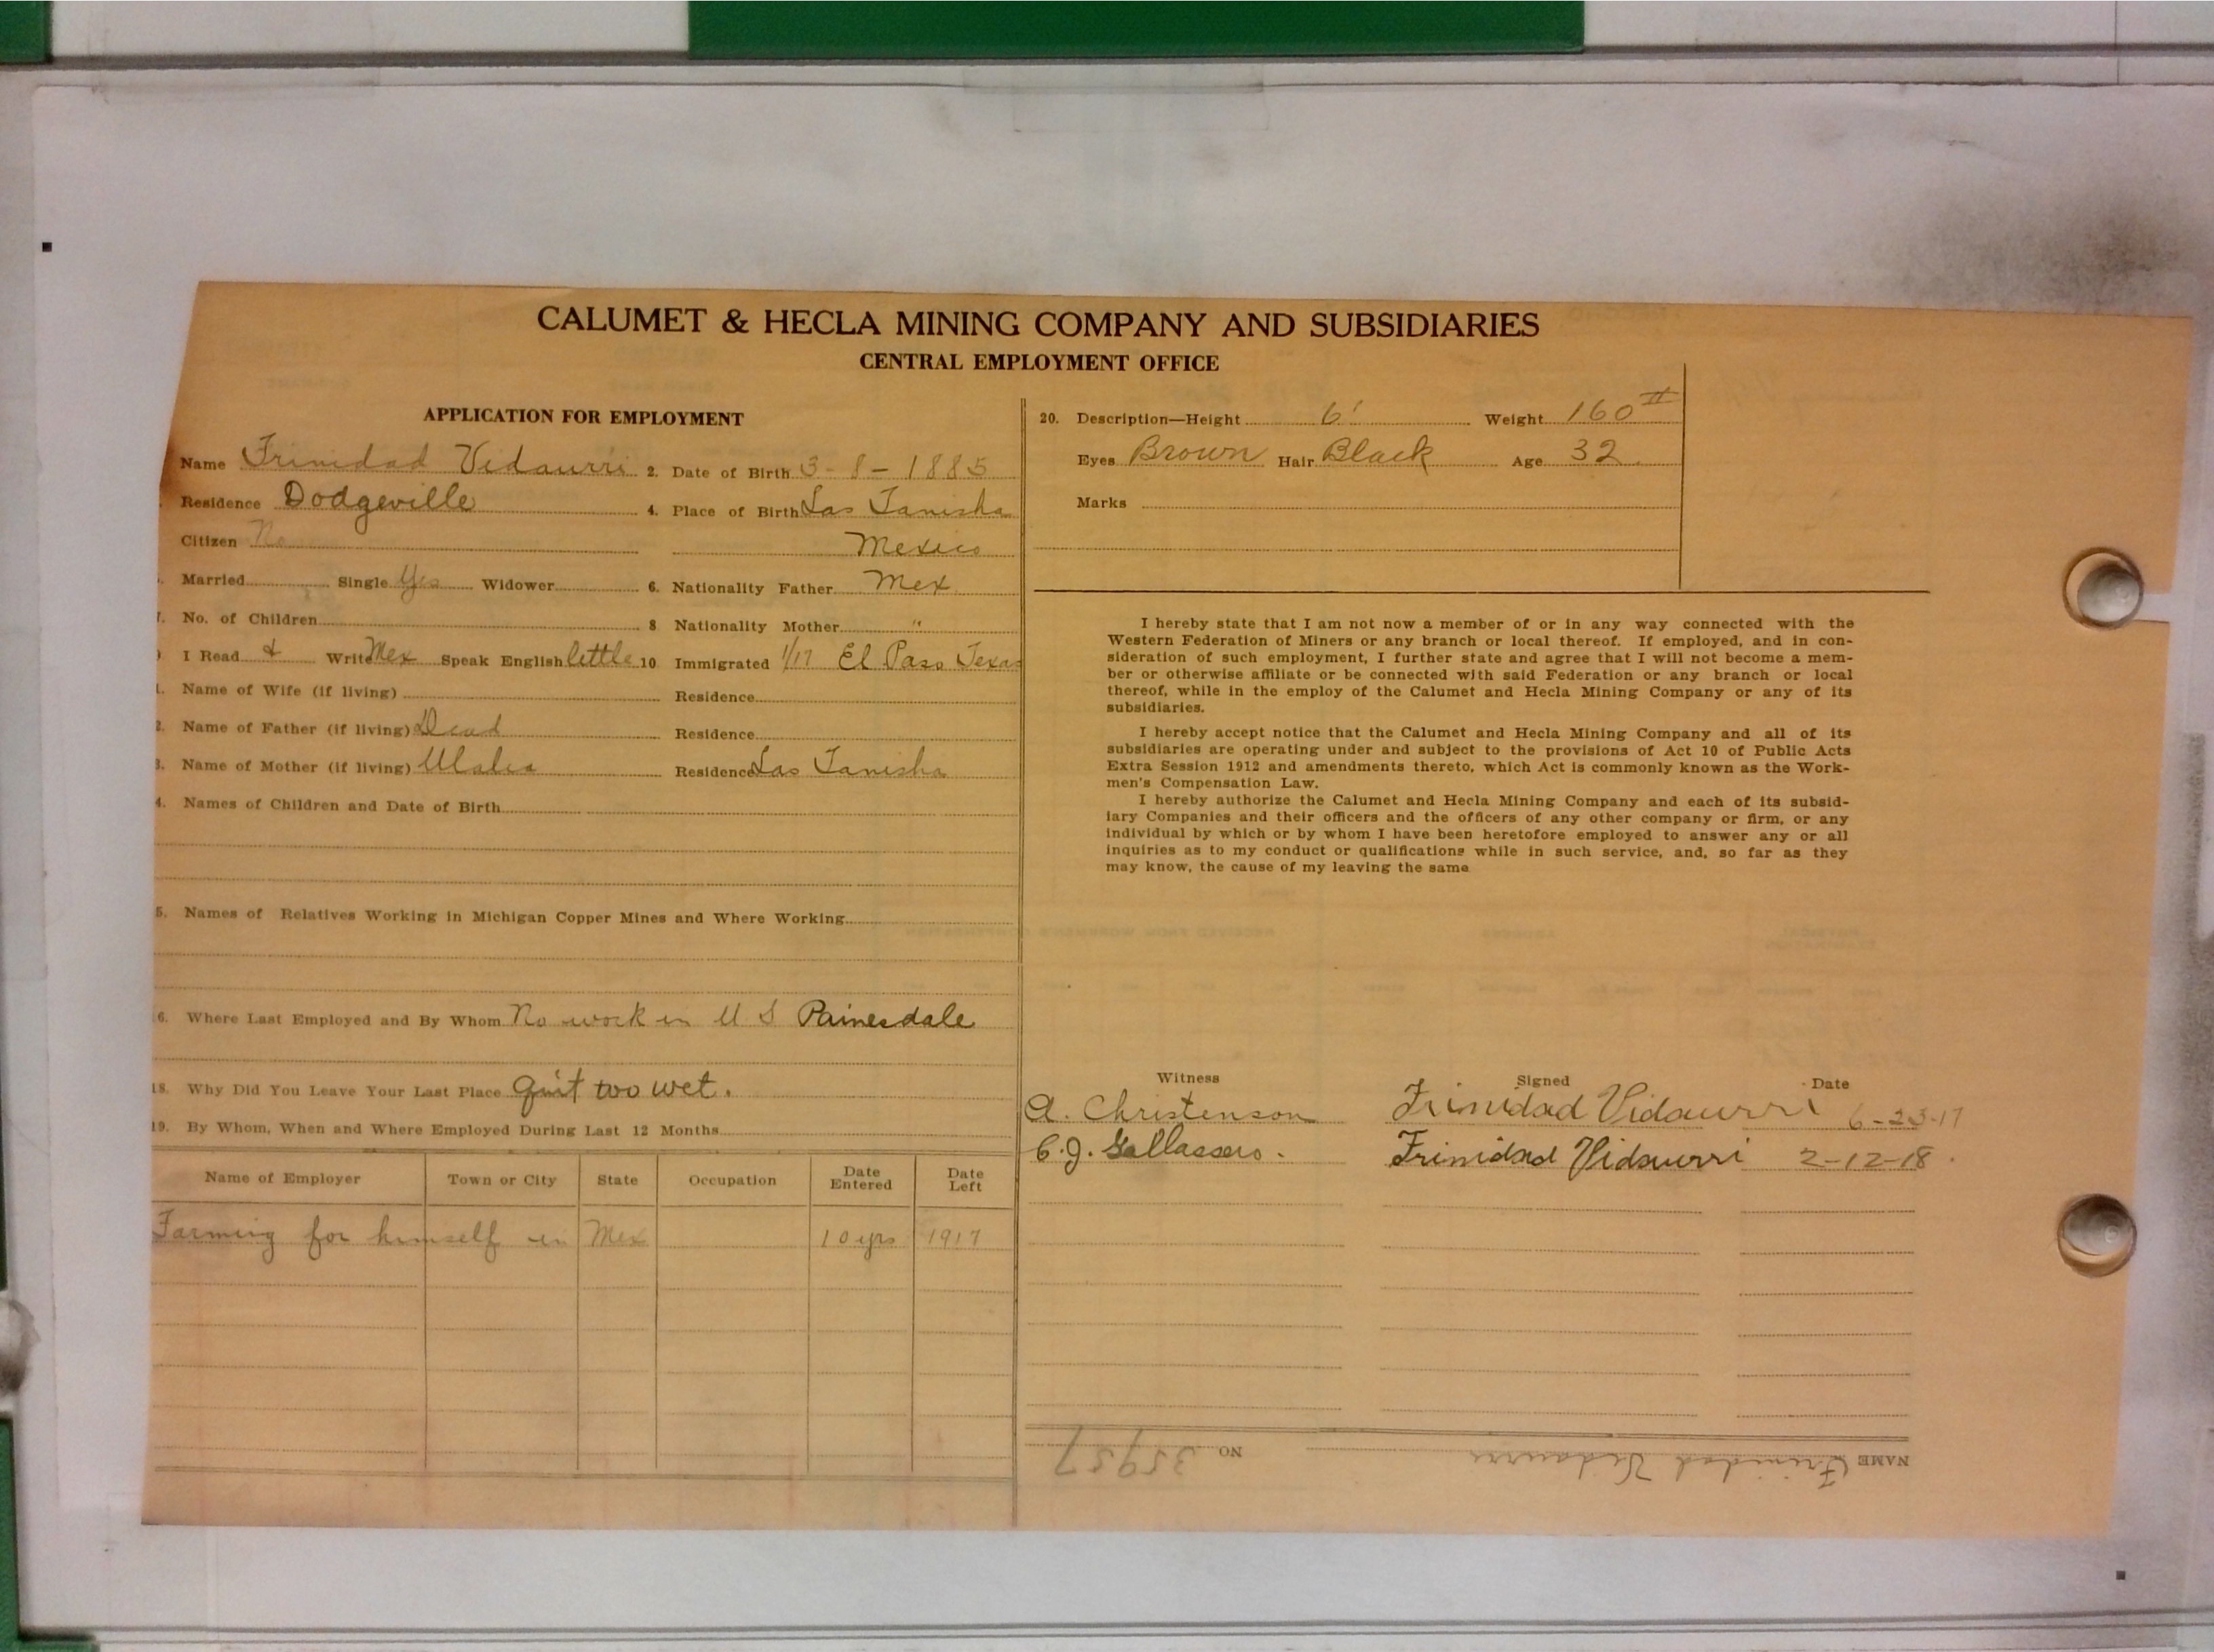 CALUMET & HECLA MINING COMPANY AND SUBSIDIARIES
CENTRAL EMPLOYMENT OFFICE
APPLICATION FOR EMPLOYMENT
Name Trinidad Vidaurri 2. Date of Birth 3-8-1885
Residence Dodgeville 4. Place of Birth Las Tanisha
Citizen No Mexico
Married Single Yes Widower 6. Nationality Father Mex
7. No. of Children 8 Nationality Mother "
I Read & Write Mex Speak English little 10 Immigrated 1/17 El Paso Texas
1. Name of Wife (if living) Residence
2. Name of Father (if living) Dead Residence
3. Name of Mother (if living) Ulalia Residence Las Tanisha
4. Names of Children and Date of Birth
5. Names of Relatives Working in Michigan Copper Mines and Where Working
6. Where Last Employed and By Whom No work in U S Painesdale
18. Why Did You Leave Your Last Place quit too wet.
19. By Whom, When and Where Employed During Last 12 Months
Name of Employer Town or City State Occupation Date Entered Date Left
Farming for himself in Mex 10 yrs 1917
20. Description—Height 6' Weight 160#
Eyes Brown Hair Black Age 32
Marks
I hereby state that I am not now a member of or in any way connected with the
Western Federation of Miners or any branch or local thereof. If employed, and in con-
sideration of such employment, I further state and agree that I will not become a mem-
ber or otherwise affiliate or be connected with said Federation or any branch or local
thereof, while in the employ of the Calumet and Hecla Mining Company or any of its
subsidiaries.
I hereby accept notice that the Calumet and Hecla Mining Company and all of its
subsidiaries are operating under and subject to the provisions of Act 10 of Public Acts
Extra Session 1912 and amendments thereto, which Act is commonly known as the Work-
men's Compensation Law.
I hereby authorize the Calumet and Hecla Mining Company and each of its subsid-
iary Companies and their officers and the officers of any other company or firm, or any
individual by which or by whom I have been heretofore employed to answer any or all
inquiries as to my conduct or qualifications while in such service, and, so far as they
may know, the cause of my leaving the same
Witness Signed Date
A. Christenson Trinidad Vidaurri 6-23-17
C. J. Trinidad Vidaurri 2-12-18.
NAME Trinidad Vidaurri NO 35957